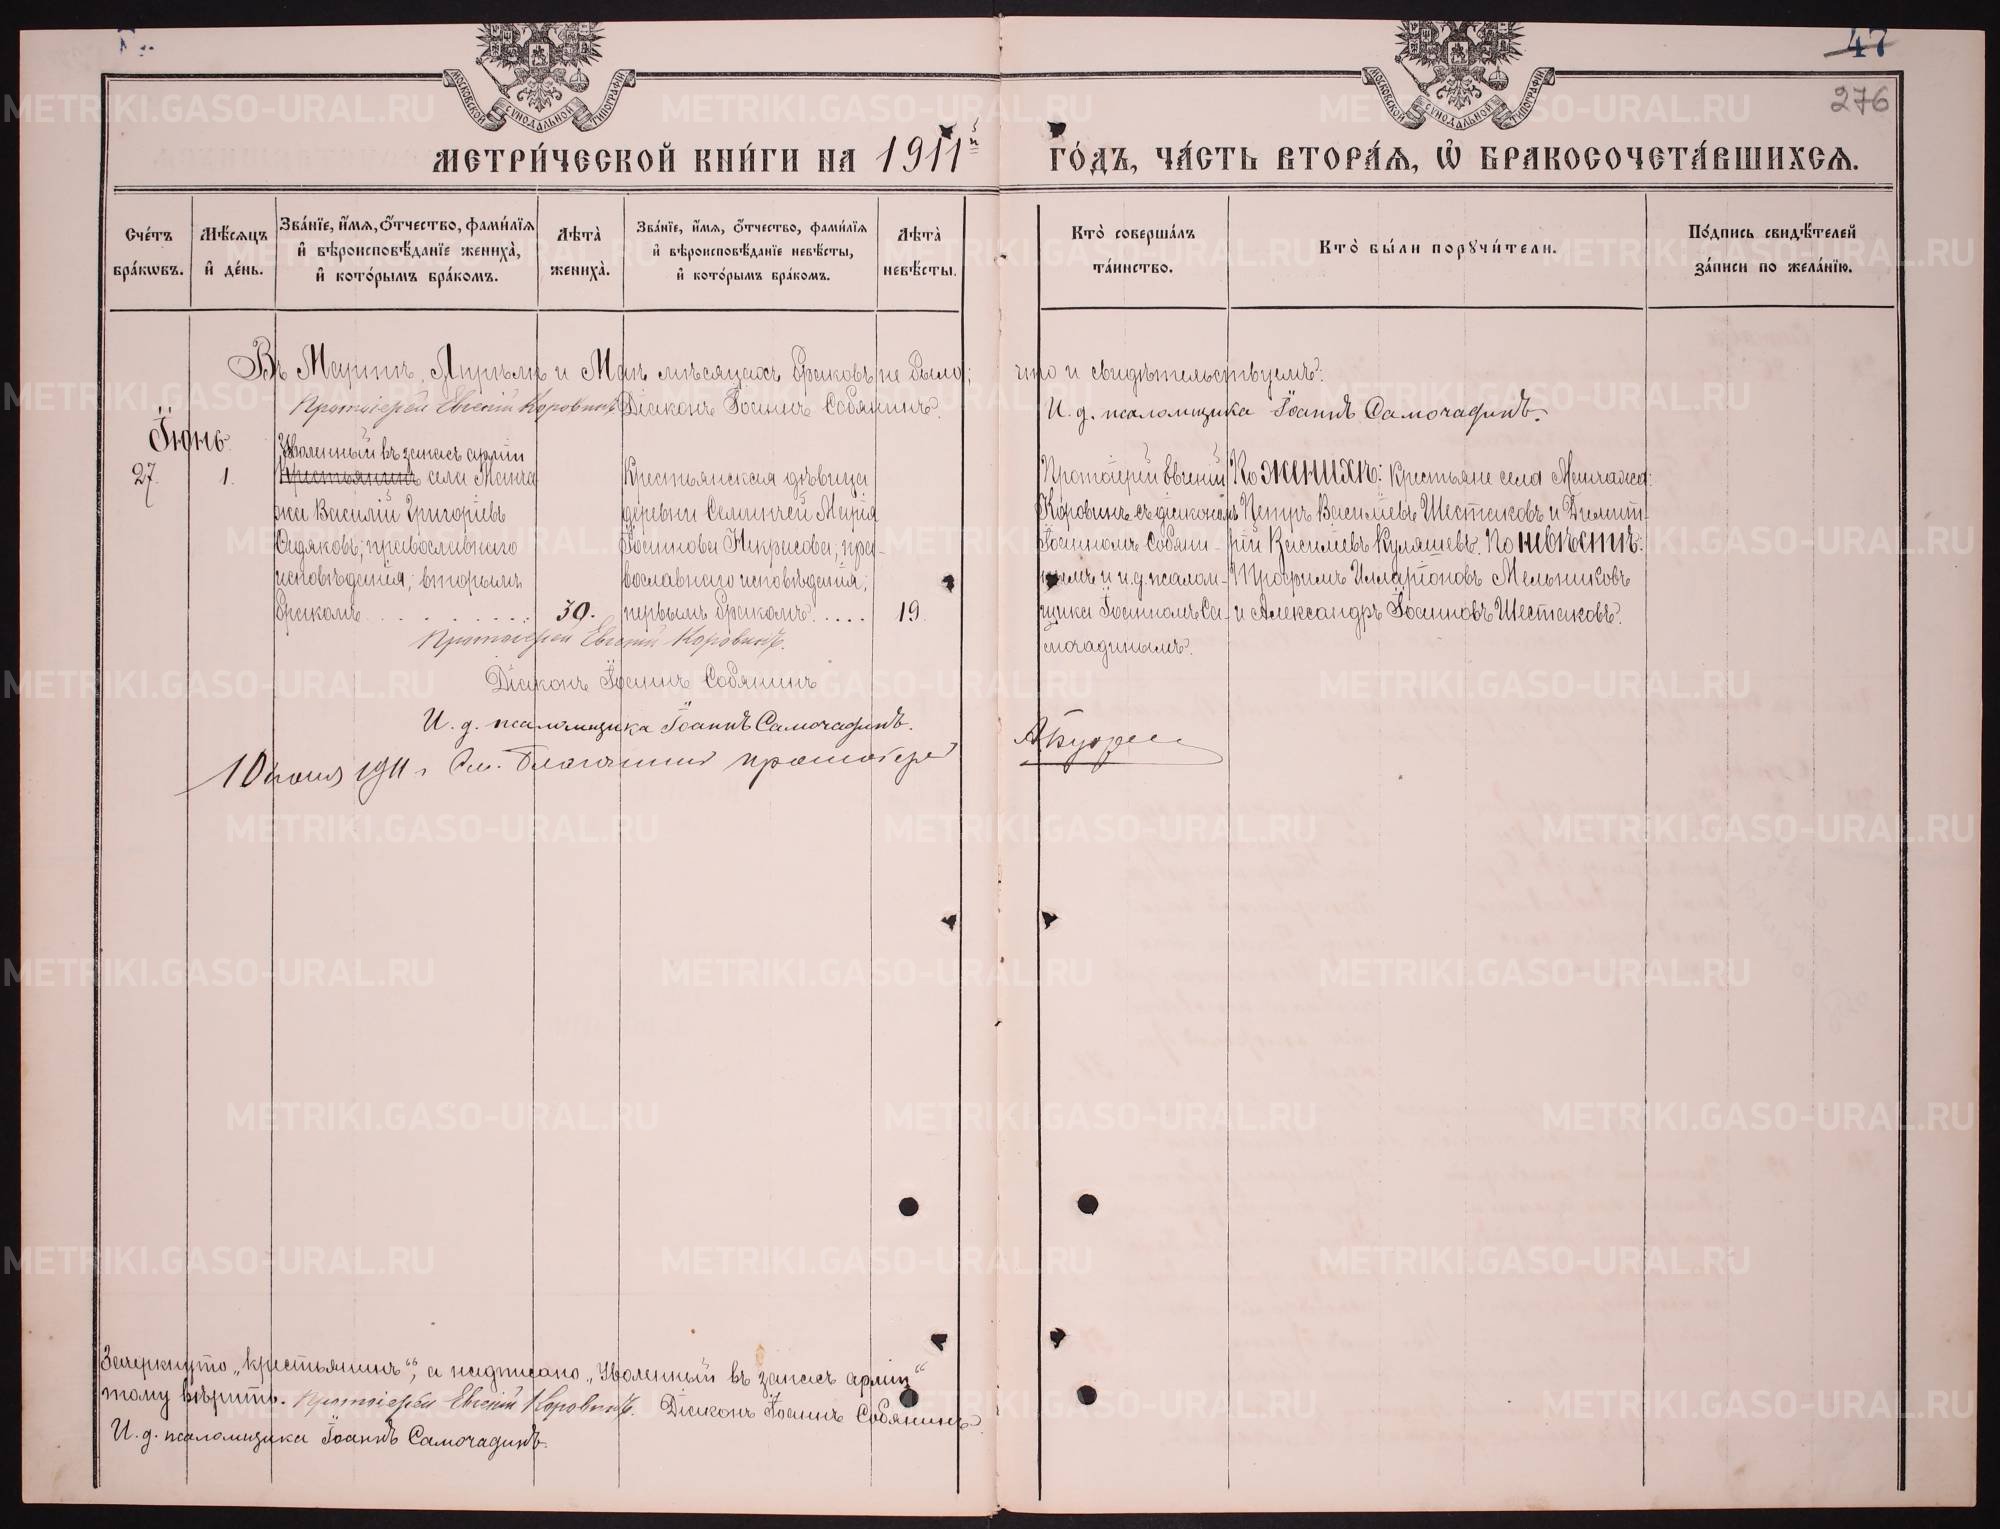 47
276
МОСКОВСКОЙ СУНОДАЛЬНОЙ ТИПОГРАФІИ
МОСКОВСКОЙ СУНОДАЛЬНОЙ ТИПОГРАФІИ
МЕТРИ́ЧЕСКОЙ КНИ́ГИ НА 1911й ГО́ДЪ, ЧА́СТЬ ВТОРА́Ѧ, Ѽ БРАКОСОЧЕТА́ВШИХСѦ.
Сче́тъ бра́кѡвъ.
Мѣ́сяцъ и҆ де́нь.
Зва́нїе, и҆́мѧ, ѻ҆́тчество, фами́лїѧ и҆ вѣроисповѣ́данїе жениха̀, и҆ кото́рымъ бра́комъ.
Лѣта̀ жениха̀.
Зва́нїе, и҆́мѧ, ѻ҆́тчество, фами́лїѧ и҆ вѣроисповѣ́данїе невѣ́сты, и҆ кото́рымъ бра́комъ.
Лѣта̀ невѣ́сты.
Кто̀ соверша́лъ та́инство.
Кто̀ бы́ли порꙋчи́тели.
По́дпись свидѣ́телей за́писи по жела́нїю.
Въ Мартѣ, Апрѣлѣ и Маѣ мѣсяцахъ браковъ не было; что и свидѣтельствуемъ:
Протоіерей Евгеній Коровинъ. Діаконъ Іоаннъ Собянинъ.
И. д. псаломщика Іоаннъ Самочадинъ.
Іюнь.
27.
1.
Уволенный въ запасъ арміи
Крестьянинъ села Манча
жа Василій Григоріевъ
православнаго
исповѣданія; вторымъ
бракомъ
39.
Крестьянская дѣвица
деревни Марія
Іоаннова Некрасова; пра-
вославнаго исповѣданія;
первымъ бракомъ
19.
Протоіерей Евгеній
Коровинъ съ діакономъ
Іоанномъ Собяни-
нымъ и и.д. псалом-
щика Іоанномъ Са-
мочадинымъ.
По женихѣ: крестьяне села Манчажа:
Петръ Васильевъ Шестаковъ и Димит-
рій Васильевъ Куляшевъ. По невѣстѣ:
Трофимъ Илларіоновъ Мельниковъ
и Александръ Іоанновъ Шестаковъ.
Протоіерей Евгеній Коровинъ.
Діаконъ Іоаннъ Собянинъ
И. д. псаломщика Іоаннъ Самочадинъ.
10 іюня 1911 г. См. благочинный протоіерей
Зачеркнуто „крестьянинъ“, а надписано „Уволенный въ запасъ арміи“
тому вѣрить. Протоіерей Евгеній Коровинъ. Діаконъ Іоаннъ Собянинъ
И. д. псаломщика Іоаннъ Самочадинъ.
METRIKI.GASO-URAL.RU